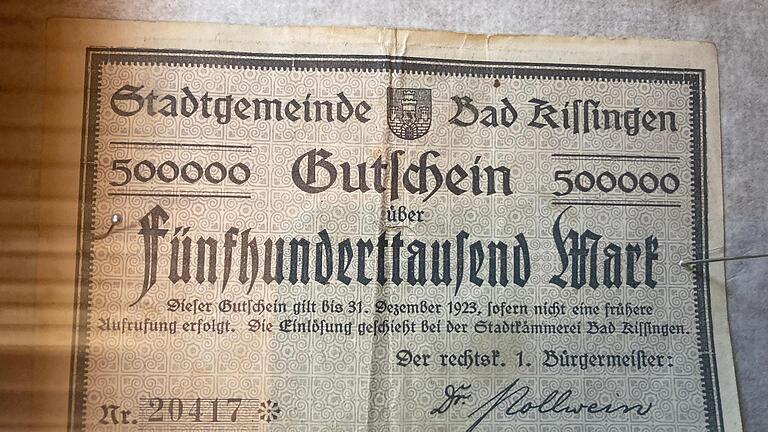 Stadtgemeinde Bad Kissingen
500000 Gutschein 500000
über
Fünfhunderttausend Mark
Dieser Gutschein gilt bis 31. Dezember 1923, sofern nicht eine frühere
Aufrufung erfolgt. Die Einlösung geschieht bei der Stadtkämmerei Bad Kissingen.
Der rechtsk. 1. Bürgermeister:
Nr. 20417 * Dr. Pollwein